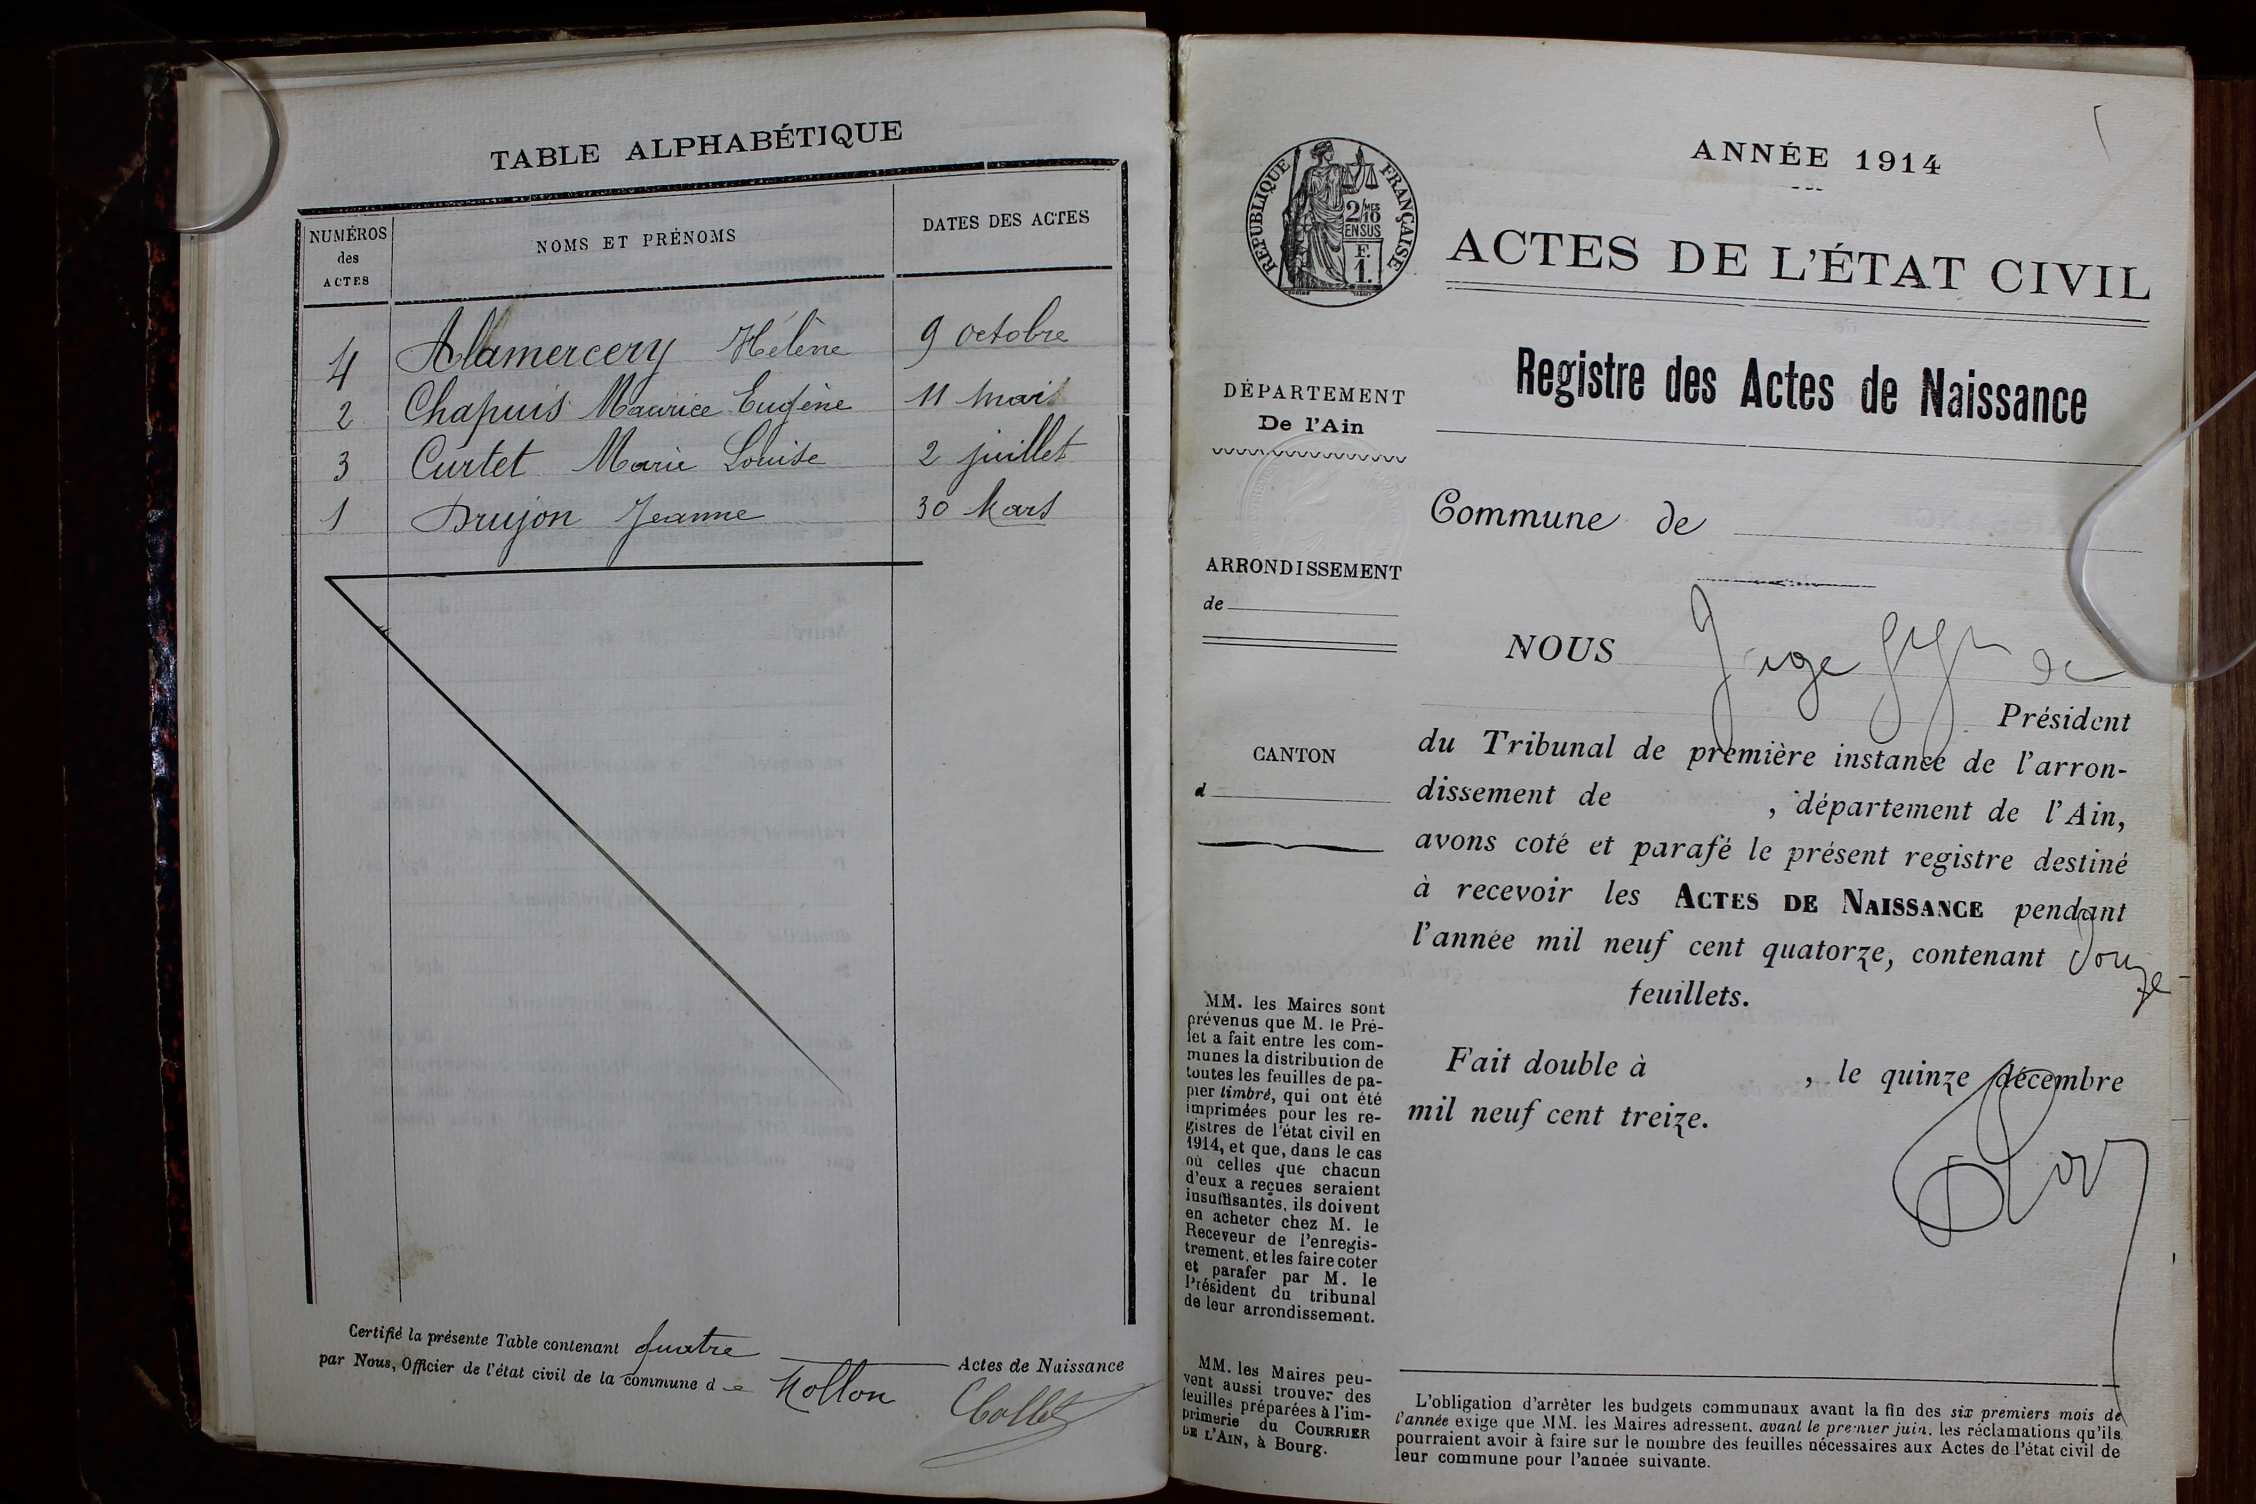 TABLE ALPHABÉTIQUE
NUMÉROS des ACTES
NOMS ET PRÉNOMS
DATES DES ACTES
4 Alamercery Hélène 9 octobre
2 Chapuis Maurice Eugène 11 mai
3 Curtet Marie Louise 2 juillet
1 Drujon Jeanne 30 Mars
Certifié la présente Table contenant quatre Actes de Naissance
par Nous, Officier de l'état civil de la commune de Mollon
Collet
ANNÉE 1914
RÉPUBLIQUE FRANÇAISE
2/10 MES
EN SUS
F.
1.
ACTES DE L'ÉTAT CIVIL
Registre des Actes de Naissance
DÉPARTEMENT
De l'Ain
ARRONDISSEMENT
de
CANTON
d
MM. les Maires sont
prévenus que M. le Pré-
fet a fait entre les com-
munes la distribution de
toutes les feuilles de pa-
pier timbré, qui ont été
imprimées pour les re-
gistres de l'état civil en
1914, et que, dans le cas
où celles que chacun
d'eux a reçues seraient
insuffisantes, ils doivent
en acheter chez M. le
Receveur de l'enregis-
trement, et les faire coter
et parafer par M. le
Président du tribunal
de leur arrondissement.
MM. les Maires peu-
vent aussi trouver des
feuilles préparées à l'im-
primerie du COURRIER
DE L'AIN, à Bourg.
Commune de
NOUS Juge
Président
du Tribunal de première instance de l'arron-
dissement de , département de l'Ain,
avons coté et parafé le présent registre destiné
à recevoir les ACTES DE NAISSANCE pendant
l'année mil neuf cent quatorze, contenant douze
feuillets.
Fait double à , le quinze décembre
mil neuf cent treize.
L'obligation d'arrêter les budgets communaux avant la fin des six premiers mois de
l'année exige que MM. les Maires adressent, avant le premier juin, les réclamations qu'ils
pourraient avoir à faire sur le nombre des feuilles nécessaires aux Actes de l'état civil de
leur commune pour l'année suivante.